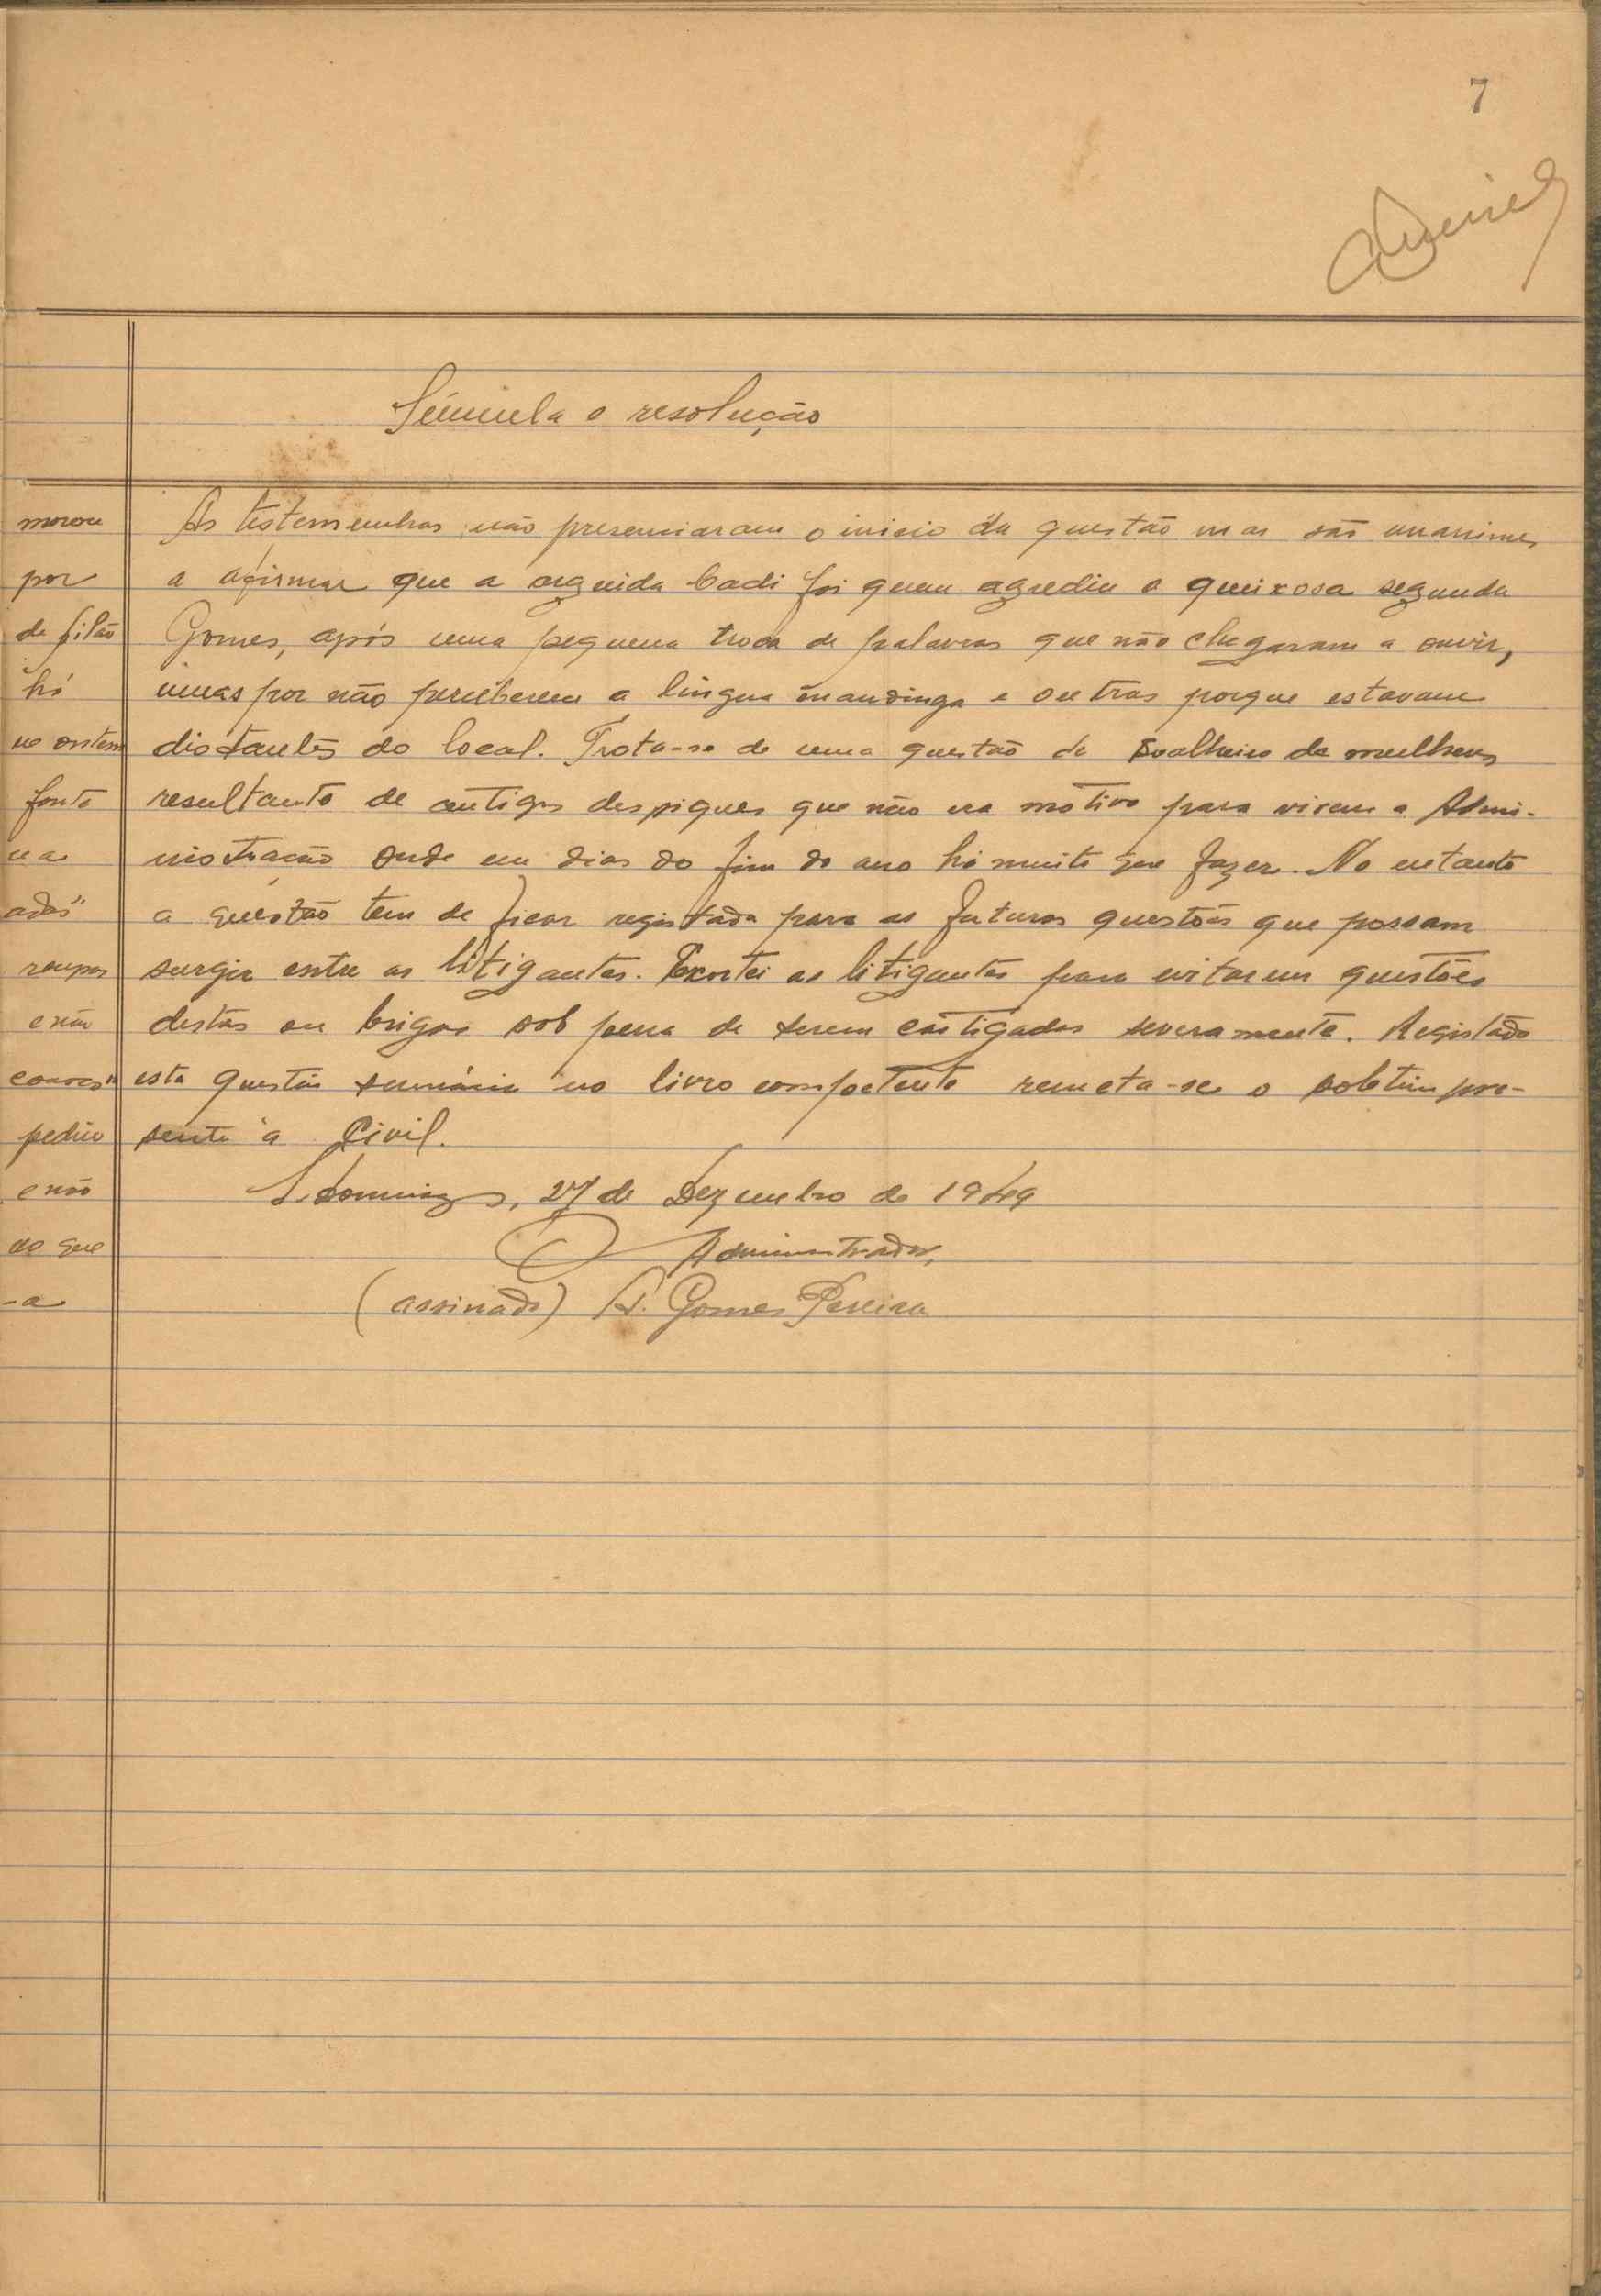 7
Súmula e resolução
morou
por
de filão
há
no ontem
fonte
na
adas"
roupas
e não
pediu
e não
do que
-a
As testemunhas não presenciaram o inicio da questão mas são unanimes
a afirmar que a arguida Cadi foi quem agrediu a queixosa segunda
Gomes, após uma pequena troca de palavras que não chegaram a ouvir,
umas por não perceberem a língua mandinga e outras porque estavam
distantes do local. Trata-se de uma questão de soalheiro de mulheres
resultante de antigos despiques que não era motivo para virem a Admi-
nistração onde em dias do fim do ano há muito que fazer. No entanto
a questão tem de ficar registada para as futuras questões que possam
surgir entre as litigantes. Exortei as litigantes para evitarem questões
destas ou brigas sob pena de serem castigadas severamente. Registada
esta questão sumária no livro competente remeta-se o boletim pre-
sente à Civil.
S. Domingos, 27 de Dezembro de 1949
O Administrador,
(assinado) A. Gomes Pereira